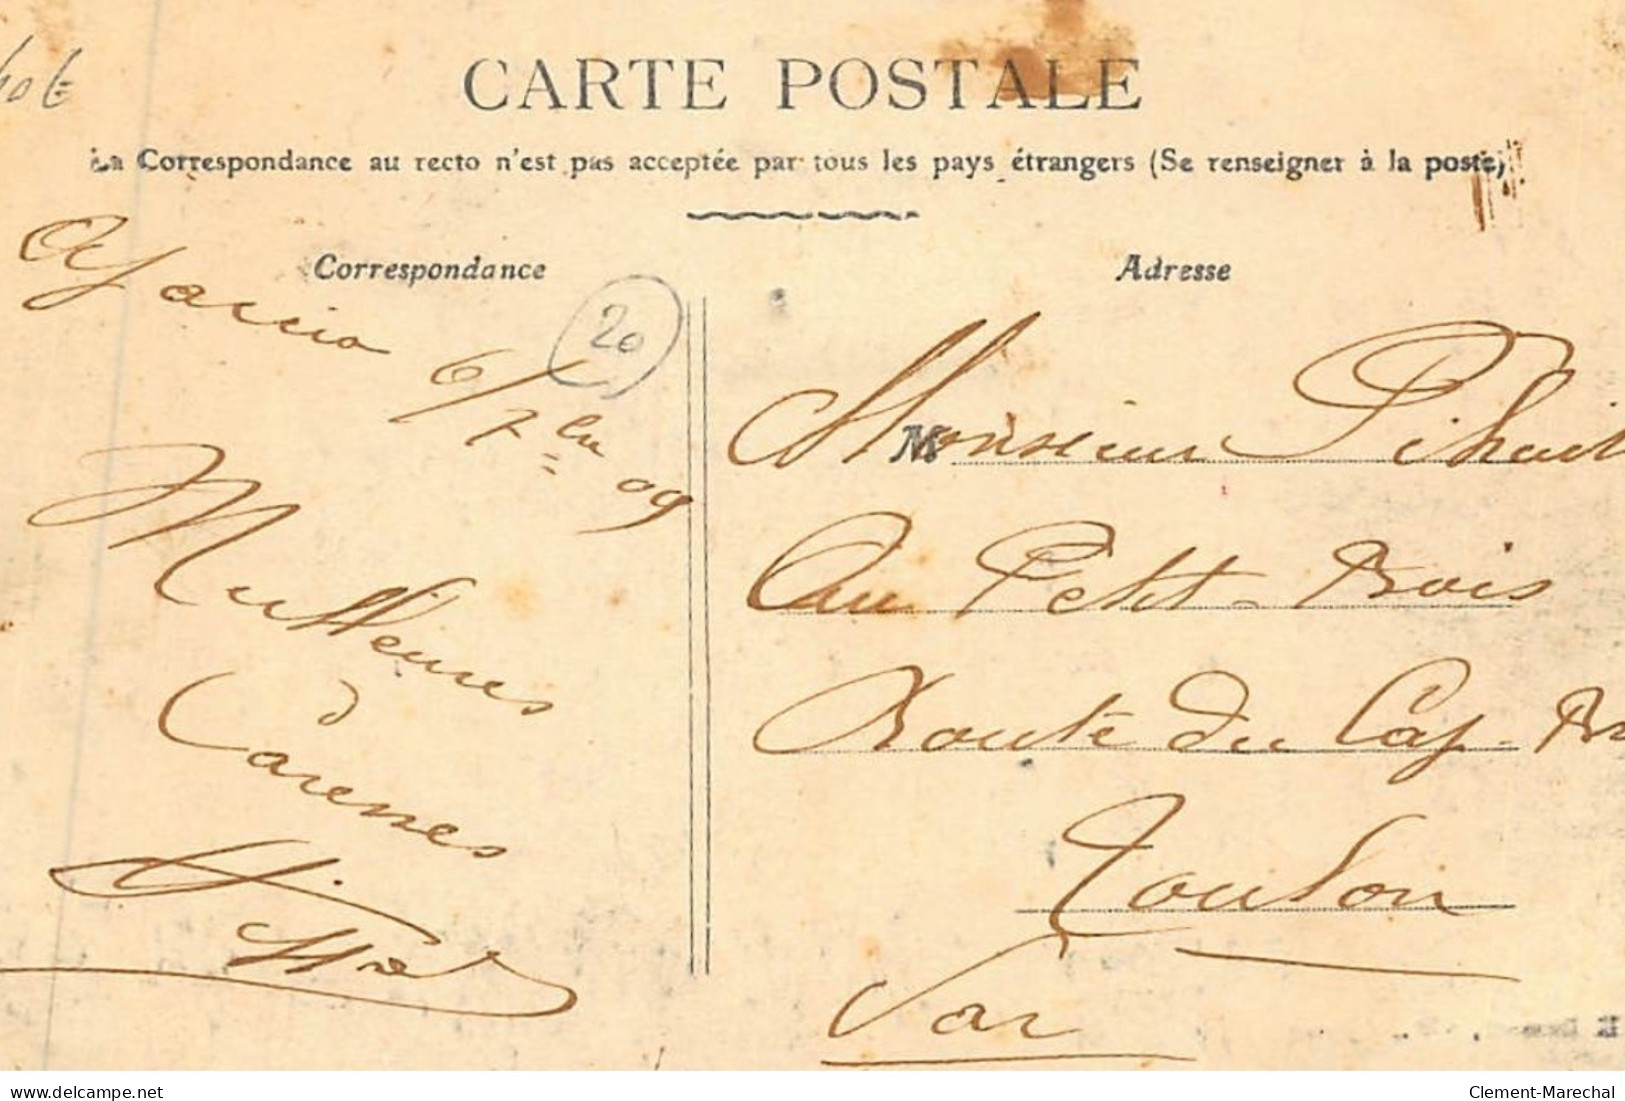 40 €
CARTE POSTALE
La Correspondance au recto n'est pas acceptée par tous les pays étrangers (Se renseigner à la poste)
Correspondance
Adresse
20
Ajaccio 6/7bre 09
Meilleures
Caresses
M
Monsieur
Au Petit-Bois
Route du Cap-Br
Toulon
Var
delcampe.net
Clement-Marechal